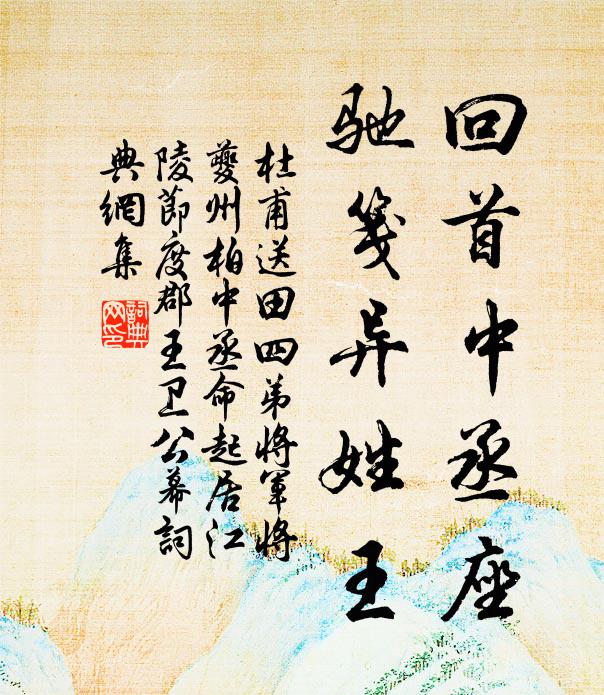 回首中丞座
驰笺异姓王
杜甫送田四弟将军将
夔州柏中丞命起居江
陵節度郡王卫公幕詞
典網集
詞典
网印